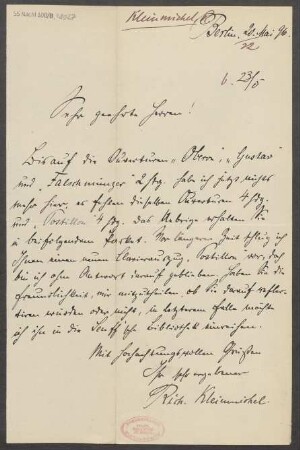 Kleinmichel, R
Berlin. 20. Mai 96.
22
b. 23/5
Sehr geehrte Herren!
Bis auf die Ouverturen "Obern", "Gustav"
und "Falschmünzer" 2/hdg. habe ich jetzt nichts
mehr hier, es fehlen dieselben Ouverturen 4/hdg.
und "Postillon" 4/hdg. Das Uebrige erhalten Sie
in beifolgendem Packet. Vor längerer Zeit schlug ich
Ihnen einen neuen Clavierauszug, Postillon vor, doch
bin ich ohne Antwort darauf geblieben, haben Sie die
Freundlichkeit, mir mitzutheilen, ob Sie darauf reflec-
tiren würden oder nicht, in letzterem Falle möchte
ich ihn in die Senff'sche Bibliothek einreihen.
Mit hochachtungsvollen Grüßen
Ihr sehr ergebener
Rich. Kleinmichel.